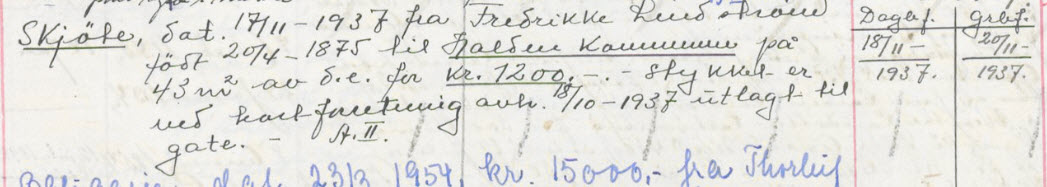 Skjöte, dat. 17/11 – 1937 fra Fredrikke Lindström
Dagbf. Grbf.
født 20/4 – 1875 til Halden Kommune på
18/11 – 1937. 20/11 – 1937.
43 m² av d.e. for kr. 1200.–. – stykket er
ved kartforretning avh. 18/10 – 1937 utlagt til
gate. – A.II.
dat. 23/3 1954, kr. 15000,- fra Thorleif